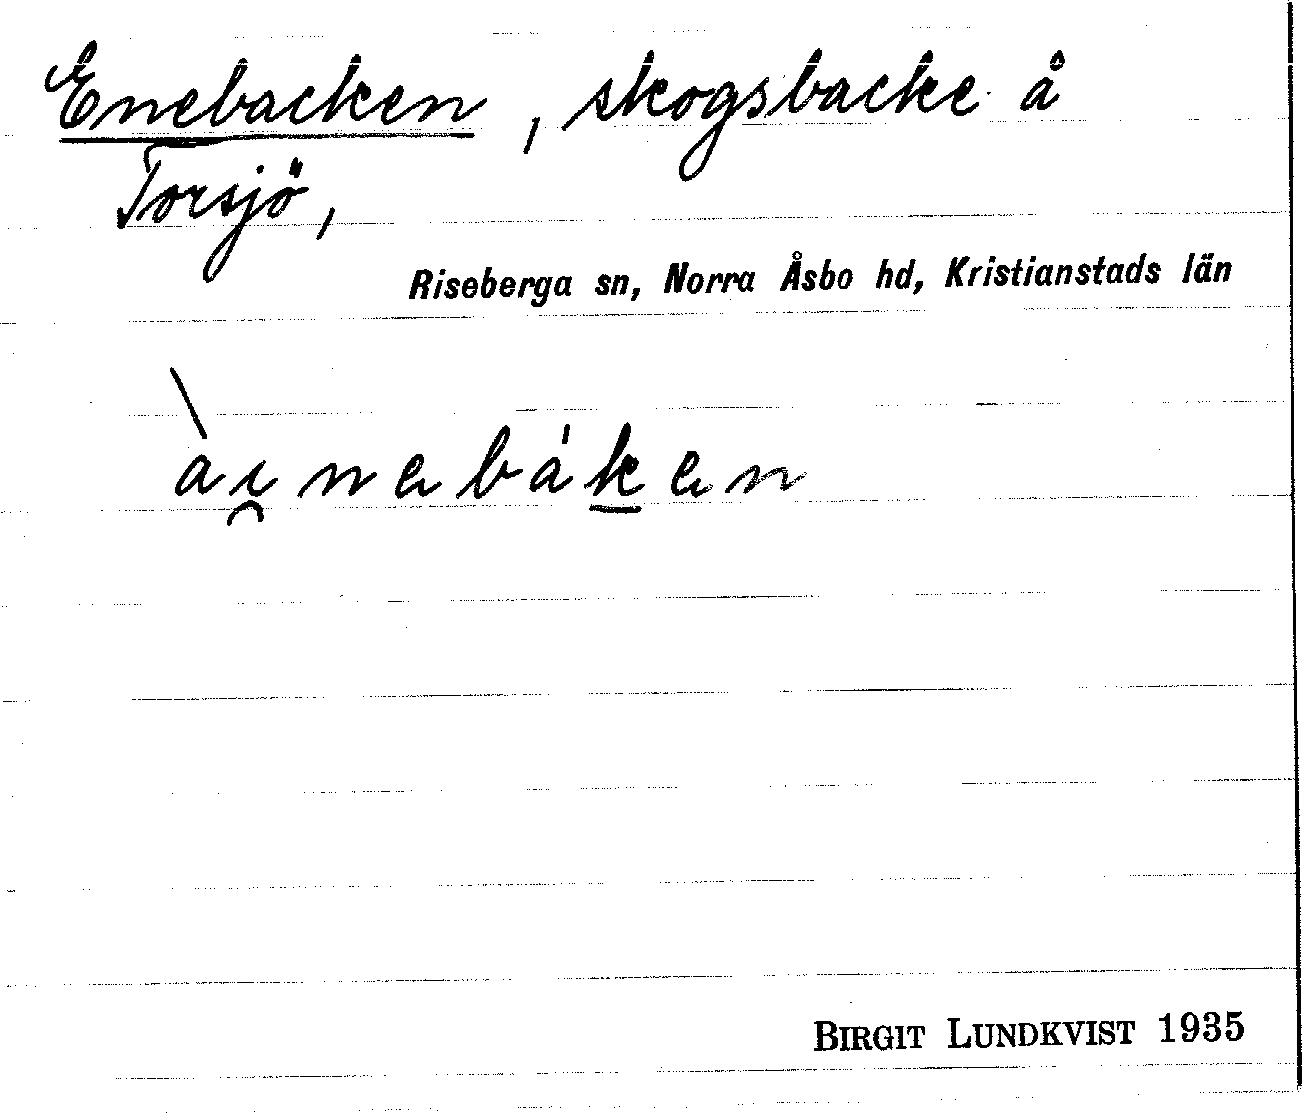 Enebacken, skogsbacke å
Torsjö,
Riseberga sn, Norra Åsbo hd, Kristianstads län
àı̯nebáken
BIRGIT LUNDKVIST 1935